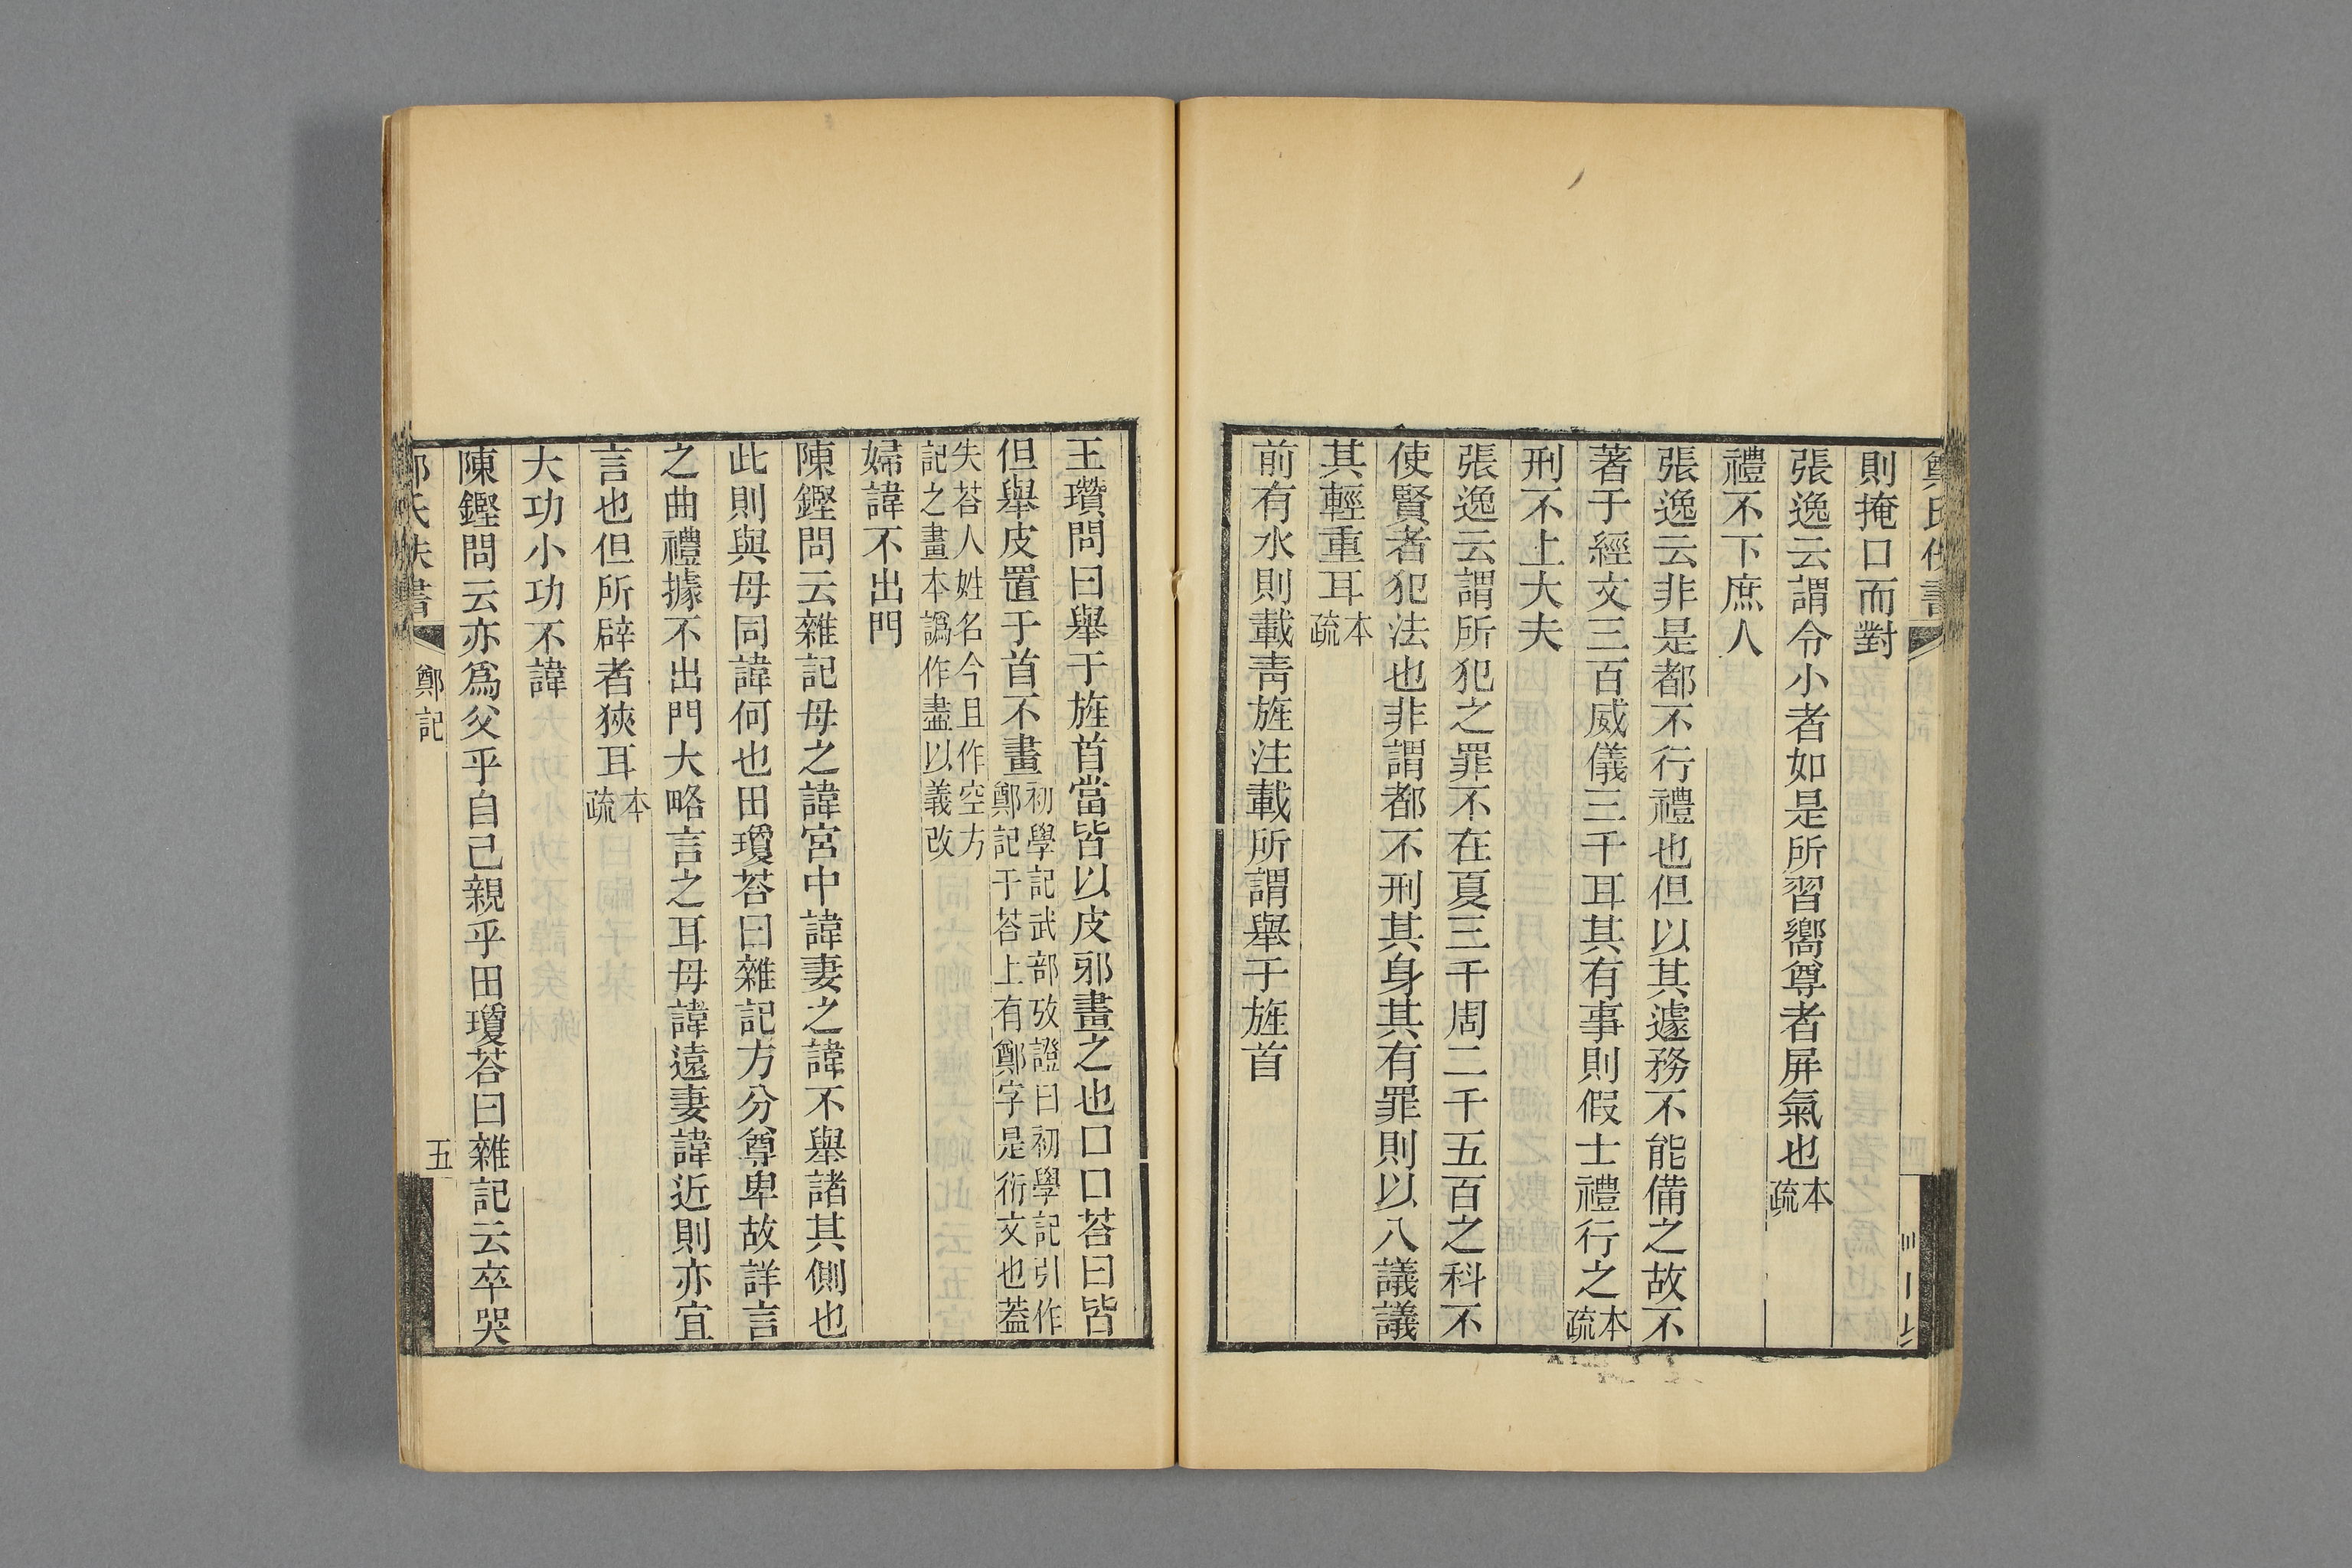 則掩口而對
張逸云謂令小者如是所習嚮尊者屏氣也本疏
禮不下庶人
張逸云非是都不行禮也但以其遽務不能備之故不
著于經文三百威儀三千耳其有事則假士禮行之本疏
刑不上大夫
張逸云謂所犯之罪不在夏三千周二千五百之科不
使賢者犯法也非謂都不刑其身其有罪則以八議議
其輕重耳本疏
前有水則載靑旌注載所謂舉于旌首
王瓚問曰舉于旌首當皆以皮邪畫之也口口荅曰皆
但舉皮置于首不畫初學記武部攷證曰初學記引作
鄭記于荅上有鄭字是衍文也葢
失荅人姓名今且作空方
記之畫本譌作盡以義改
婦諱不出門
陳鏗問云雜記母之諱宮中諱妻之諱不舉諸其側也
此則與母同諱何也田瓊荅曰雜記方分尊卑故詳言
之曲禮據不出門大略言之耳母諱遠妻諱近則亦宜
言也但所辟者狹耳本疏
大功小功不諱
陳鏗問云亦爲父乎自己親乎田瓊荅曰雜記云卒哭
鄭記
五